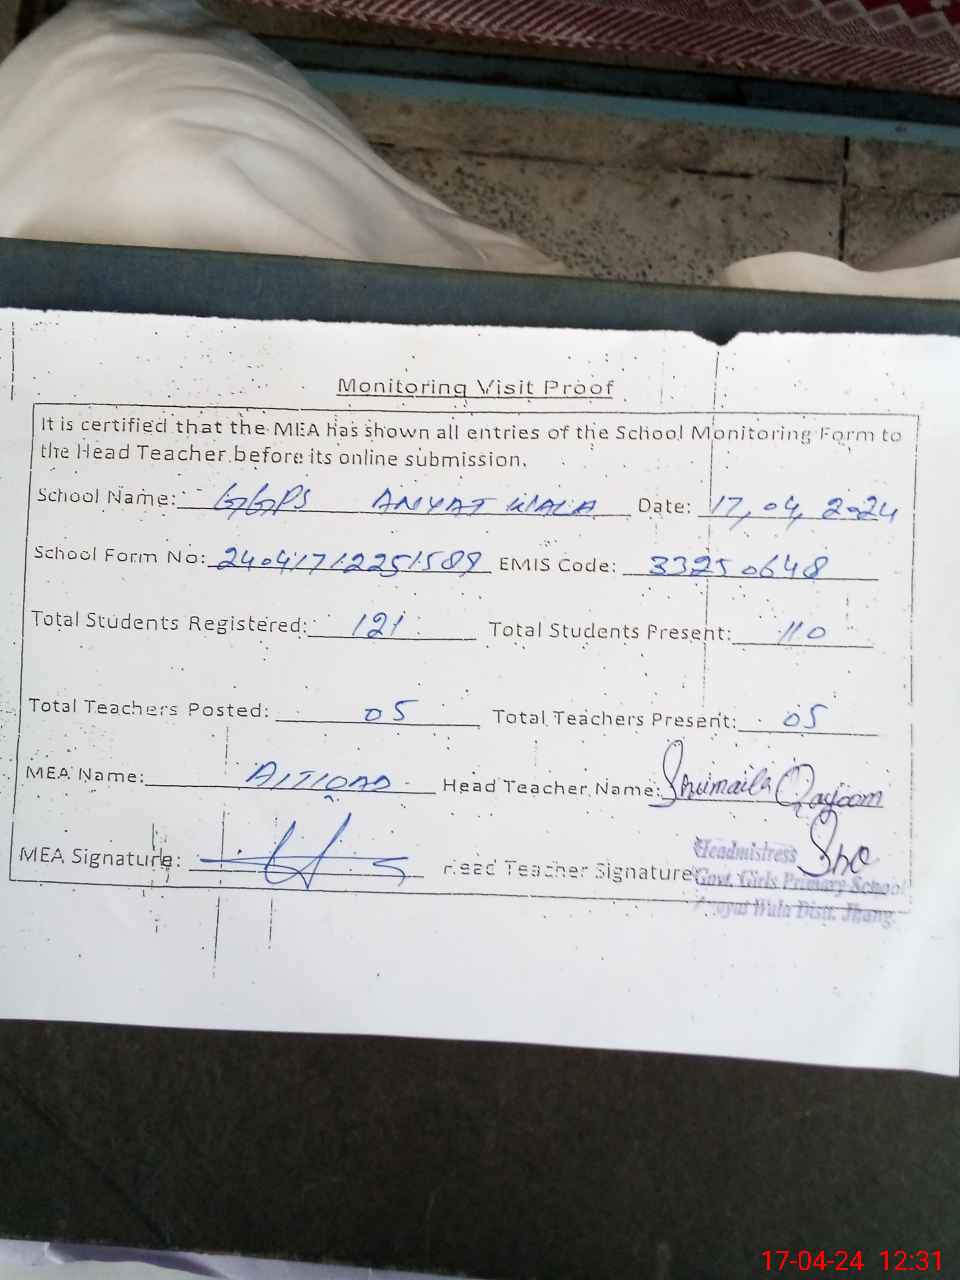 Monitoring Visit Proof
It is certified that the MEA has shown all entries of the School Monitoring Form to
the Head Teacher before its online submission.
School Name: GGPS ANYAT WALA Date: 17, 04, 2024
School Form No: 24041712251589 EMIS Code: 33250648
Total Students Registered: 121 Total Students Present: 110
Total Teachers Posted: 05 Total Teachers Present: 05
MEA Name: Head Teacher Name: Shumaila Qayoom
MEA Signature: Head Teacher Signature
Headmistress
Govt. Girls Primary School
Wala Distt. Jhang
17-04-24 12:31